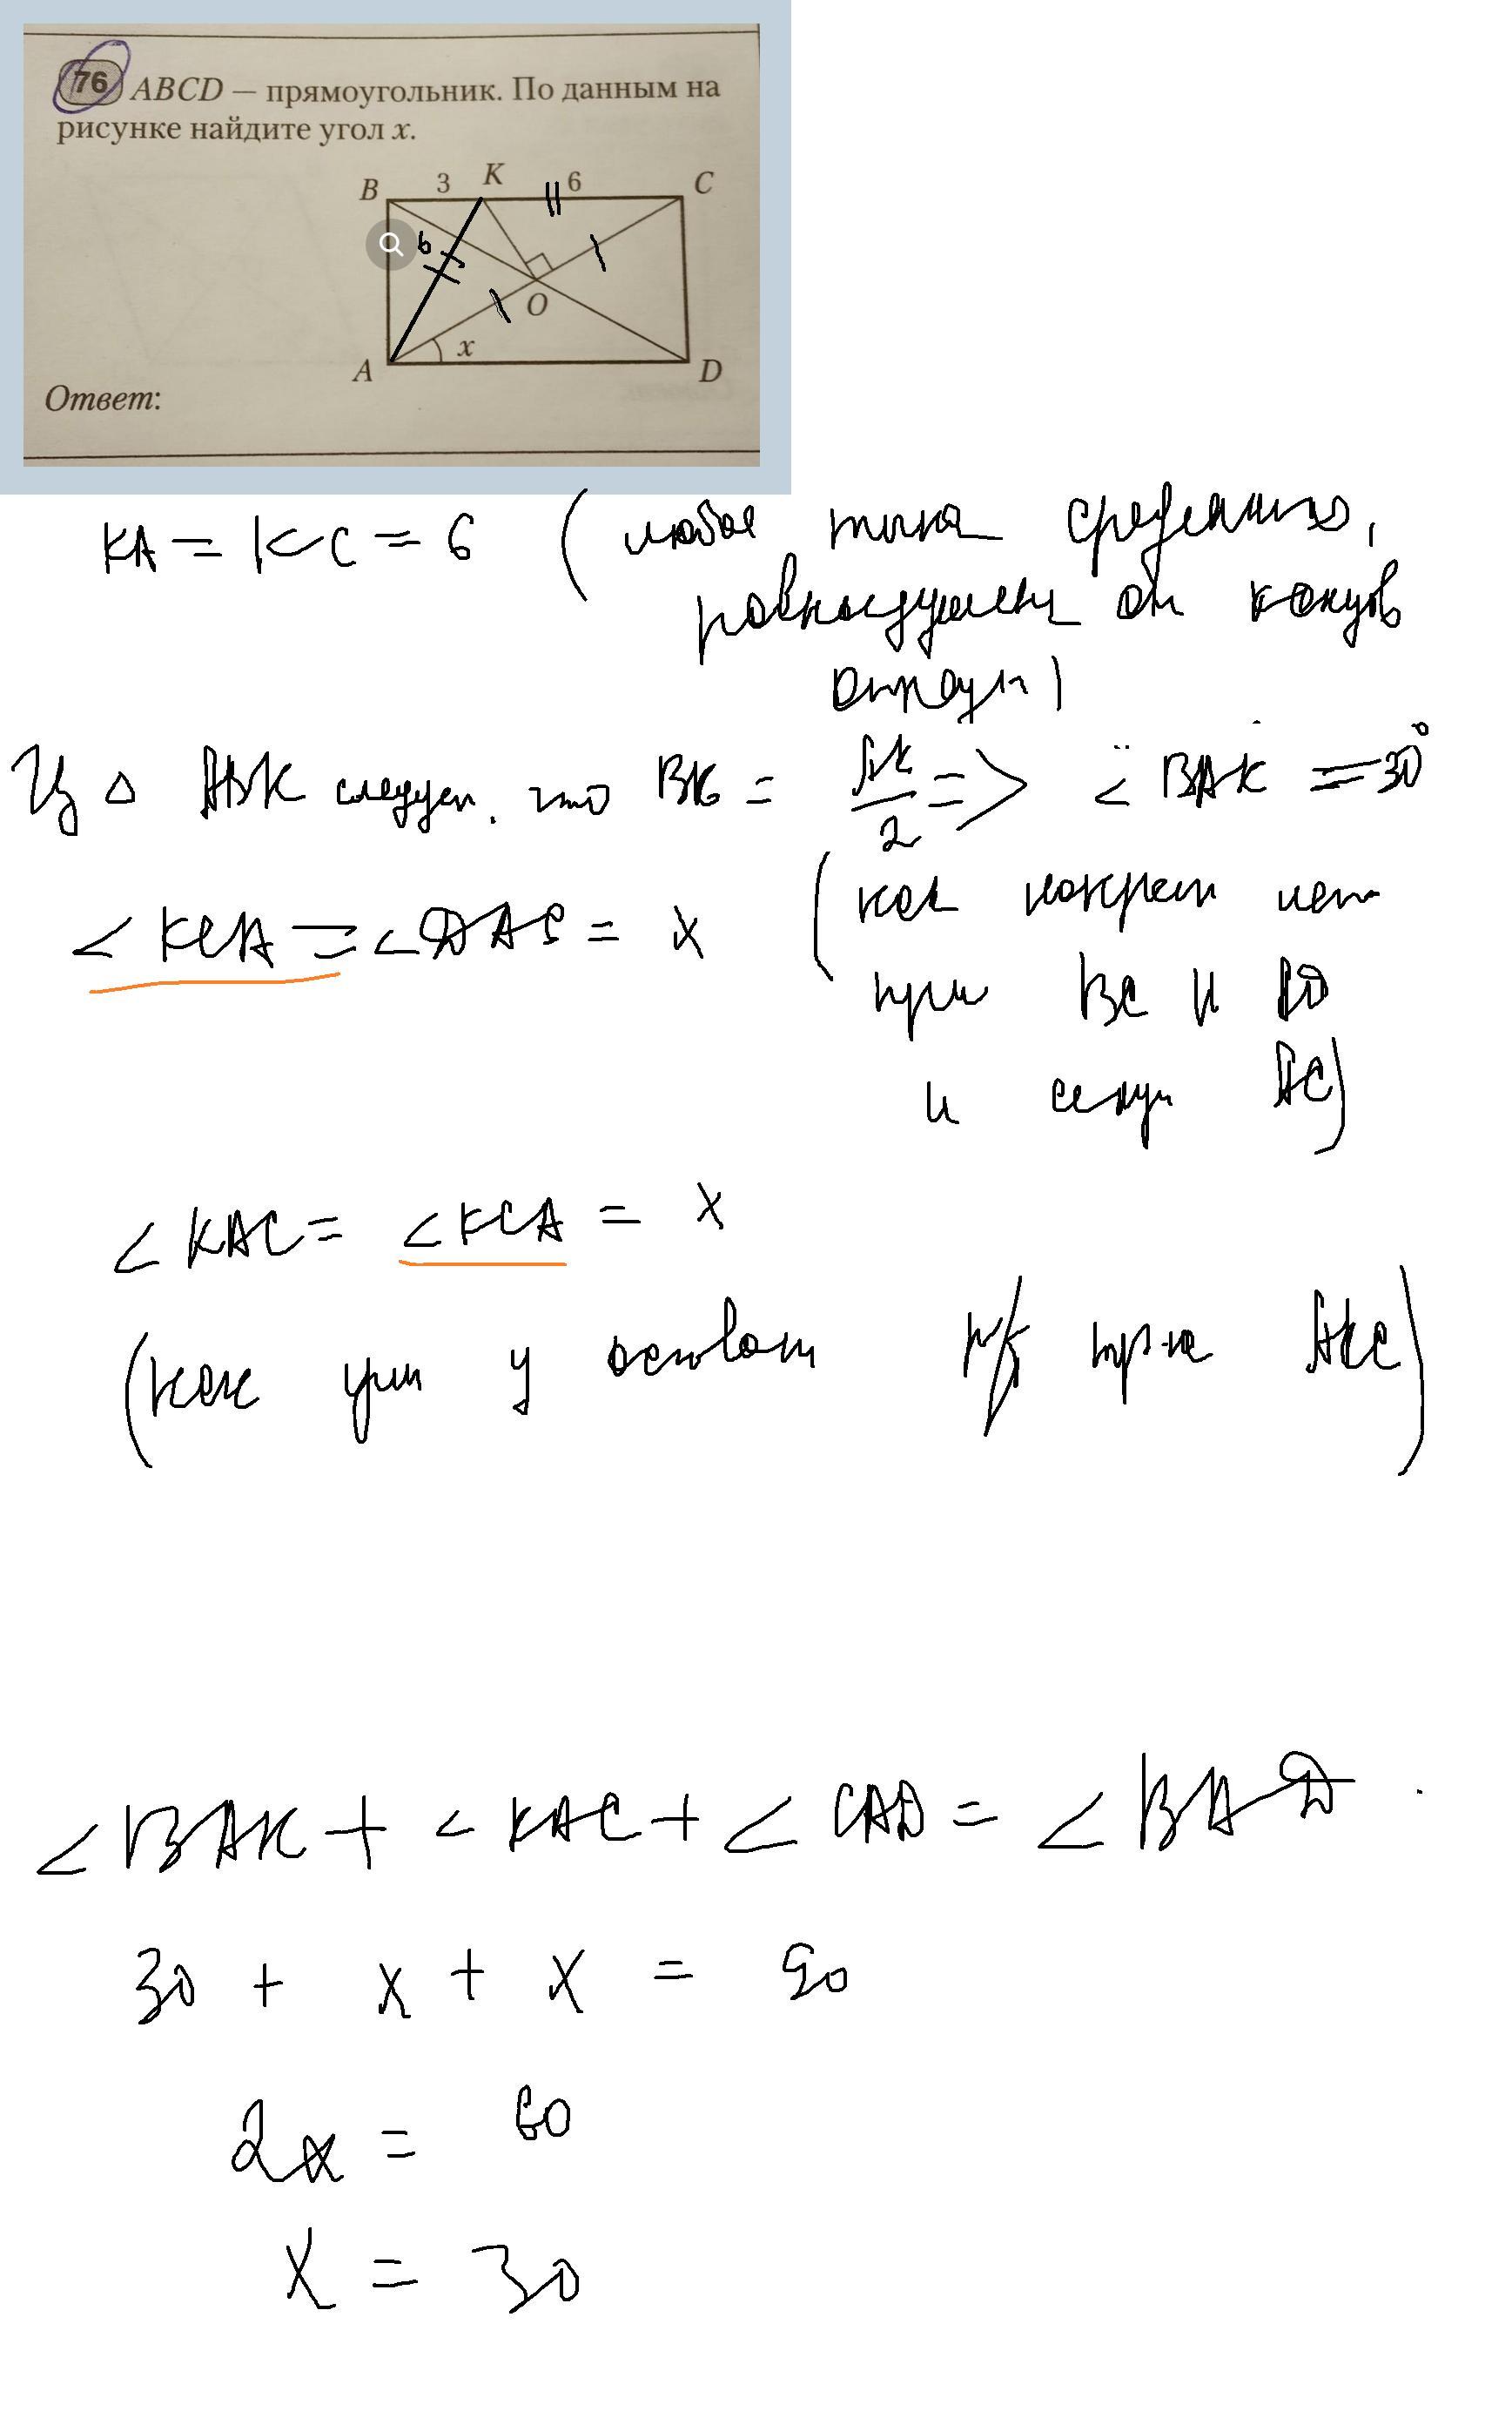 76 ABCD — прямоугольник. По данным на
рисунке найдите угол x.
B 3 K 6 C
6
O
x
A D
Ответ:
KA = KC = 6 (любая точка
равноудалена от концов
Из △ ABK следует, что BK = AK/2 => ∠BAK = 30°
∠KCA = ∠DAC = x (как накрест леж
при BC и AD
и секущ AC)
∠KAC = ∠KCA = x
(как углы у основан р/б тр-ка AKC)
∠BAK + ∠KAC + ∠CAD = ∠BAD
30 + x + x = 90
2x = 60
x = 30